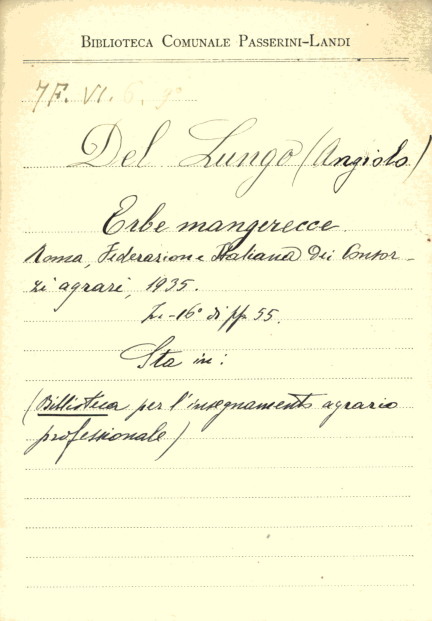 BIBLIOTECA COMUNALE PASSERINI-LANDI
7F. VI. 6. 9°
Del Lungo (Angiolo)
Erbe mangerecce
Roma, Federazione Italiana dei Consor-
zi agrari, 1935.
In-16° di pp. 55.
Sta in:
(Biblioteca per l'insegnamento agrario
professionale)